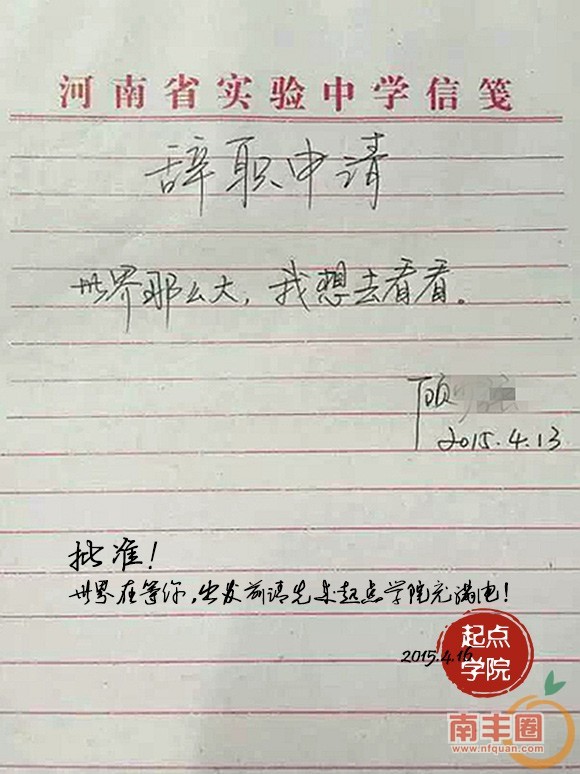 河南省实验中学信笺
辞职申请
世界那么大，我想去看看。
顾
2015.4.13
批准！
世界在等你，出发前请先来起点学院充满电！
2015.4.16
起点
学院
南丰圈
www.nfquan.com